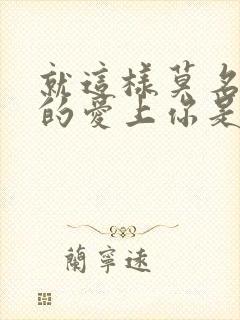 就這樣莫名
的愛上你是
蘭寧遠